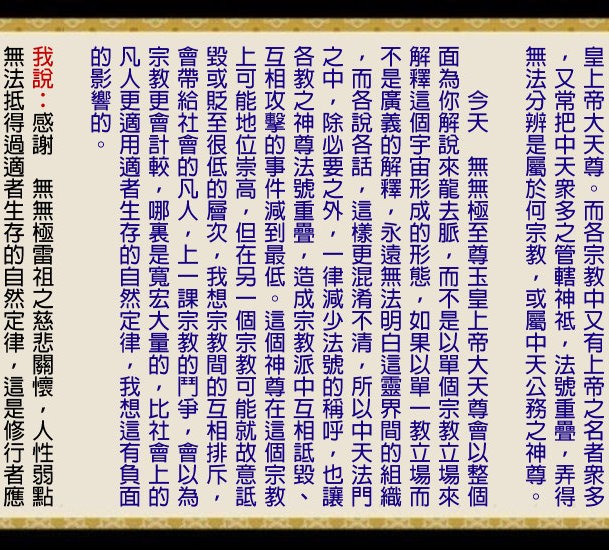 皇上帝大天尊。而各宗教中又有上帝之名者衆多
，又常把中天衆多之管轄神祇，法號重疊，弄得
無法分辨是屬於何宗教，或屬中天公務之神尊。
今天　無無極至尊玉皇上帝大天尊會以整個
面為你解說來龍去脈，而不是以單個宗教立場來
解釋這個宇宙形成的形態，如果以單一教立場而
不是廣義的解釋，永遠無法明白這靈界間的組織
，而各說各話，這樣更混淆不清，所以中天法門
之中，除必要之外，一律減少法號的稱呼，也讓
各教之神尊法號重疊，造成宗教派中互相詆毀、
互相攻擊的事件減到最低。這個神尊在這個宗教
上可能地位崇高，但在另一個宗教可能就故意詆
毀或貶至很低的層次，我想宗教間的互相排斥，
會帶給社會的凡人，上一課宗教的鬥爭，會以為
宗教更會計較，哪裏是寬宏大量的，比社會上的
凡人更適用適者生存的自然定律，我想這有負面
的影響的。
我說：感謝　無無極雷祖之慈悲關懷，人性弱點
無法抵得過適者生存的自然定律，這是修行者應